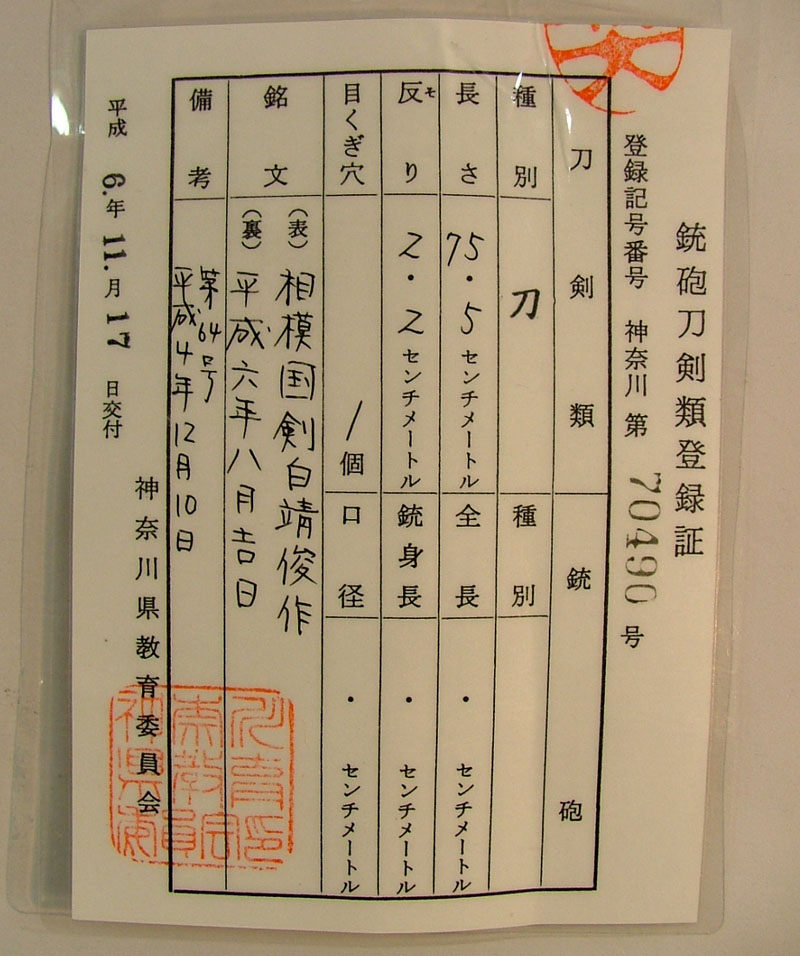 銃砲刀剣類登録証
登録記号番号 神奈川 第 70490 号
刀剣類 銃砲
種別 刀 種別
長さ 75.5センチメートル 全長 ・ センチメートル
反り ソリ 2.2センチメートル 銃身長 ・ センチメートル
目くぎ穴 1個 口径 ・ センチメートル
銘文 (表) 相模国剣白靖俊作
(裏) 平成六年八月吉日
備考 第64号
平成4年12月10日
平成 6.年 11.月 17 日交付
神奈川県教育委員会